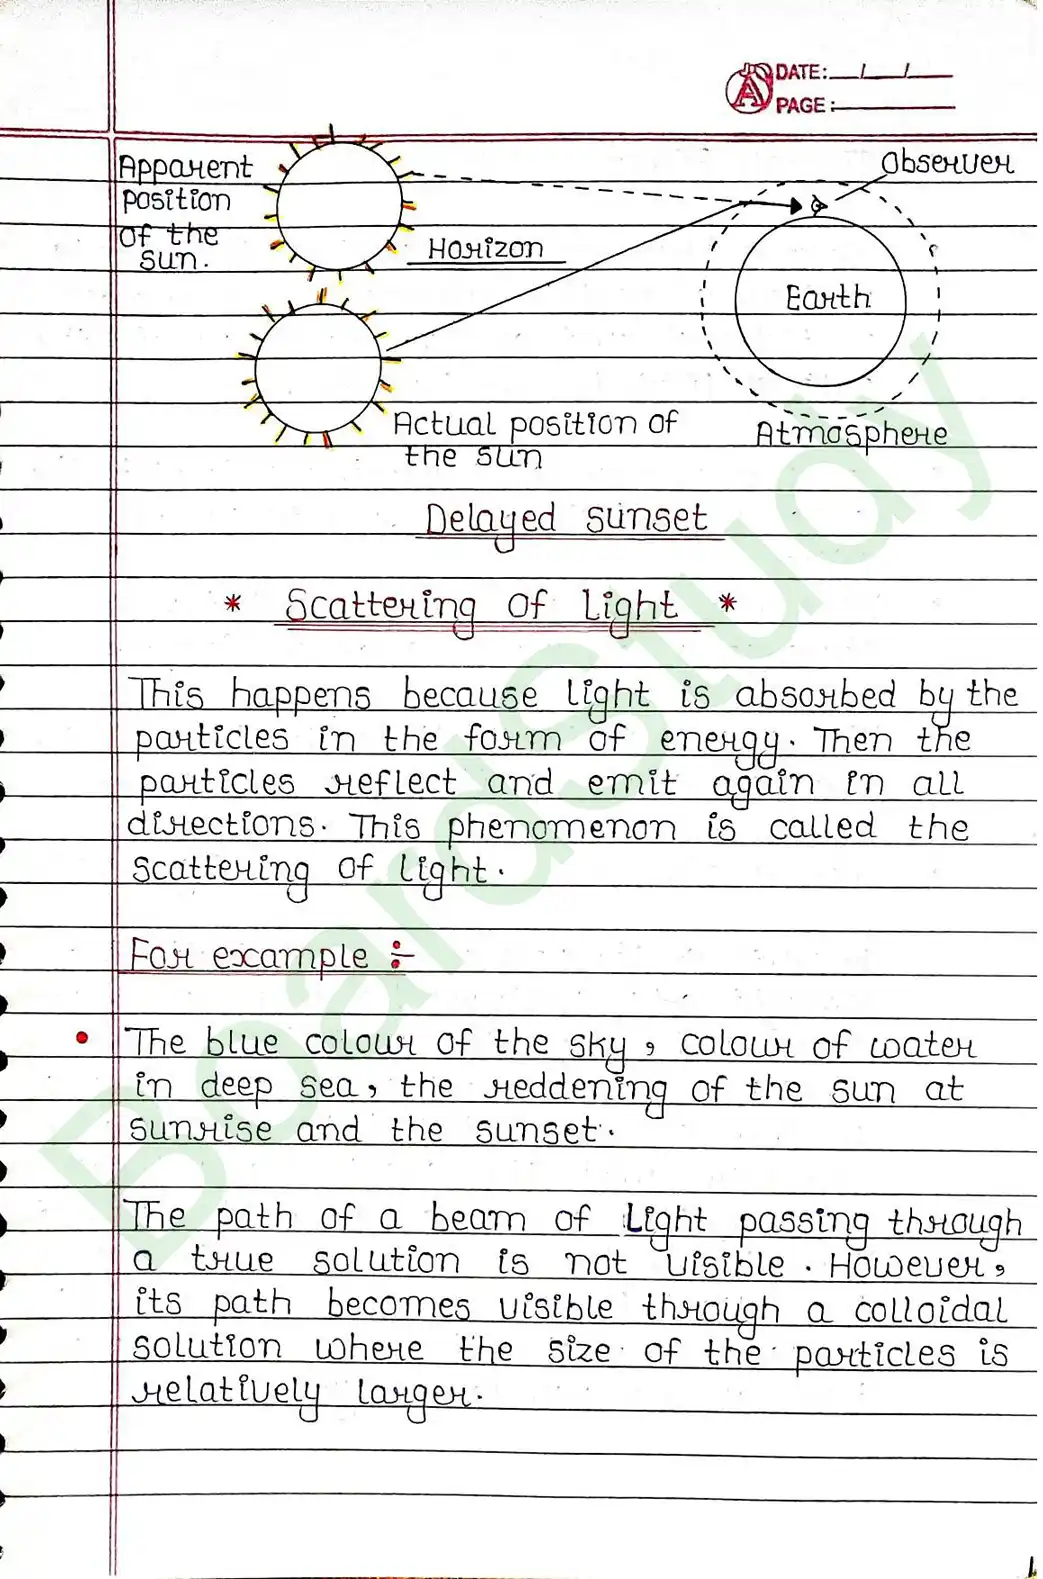 DATE: __/__/__
PAGE:
Apparent
position
of the
sun.
Observer
Horizon
Earth
Actual position of
the sun
Atmosphere
Delayed sunset
* Scattering of Light *
This happens because light is absorbed by the
particles in the form of energy. Then the
particles reflect and emit again in all
directions. This phenomenon is called the
scattering of light.
For example ÷
• The blue colour of the sky, colour of water
in deep sea, the reddening of the sun at
sunrise and the sunset.
The path of a beam of Light passing through
a true solution is not visible. However,
its path becomes visible through a colloidal
solution where the size of the particles is
relatively larger.
BoardStudy